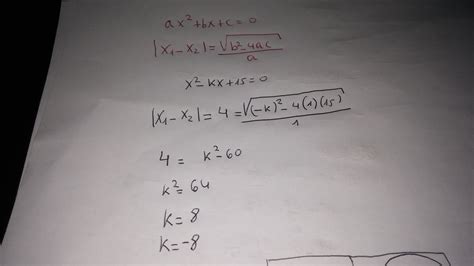 ax²+bx+c=0
|x₁-x₂|=√(b²-4ac)/a
x²-kx+15=0
|x₁-x₂|=4=√((-k)²-4(1)(15))/1
4 = k²-60
k²=64
k=8
k=-8